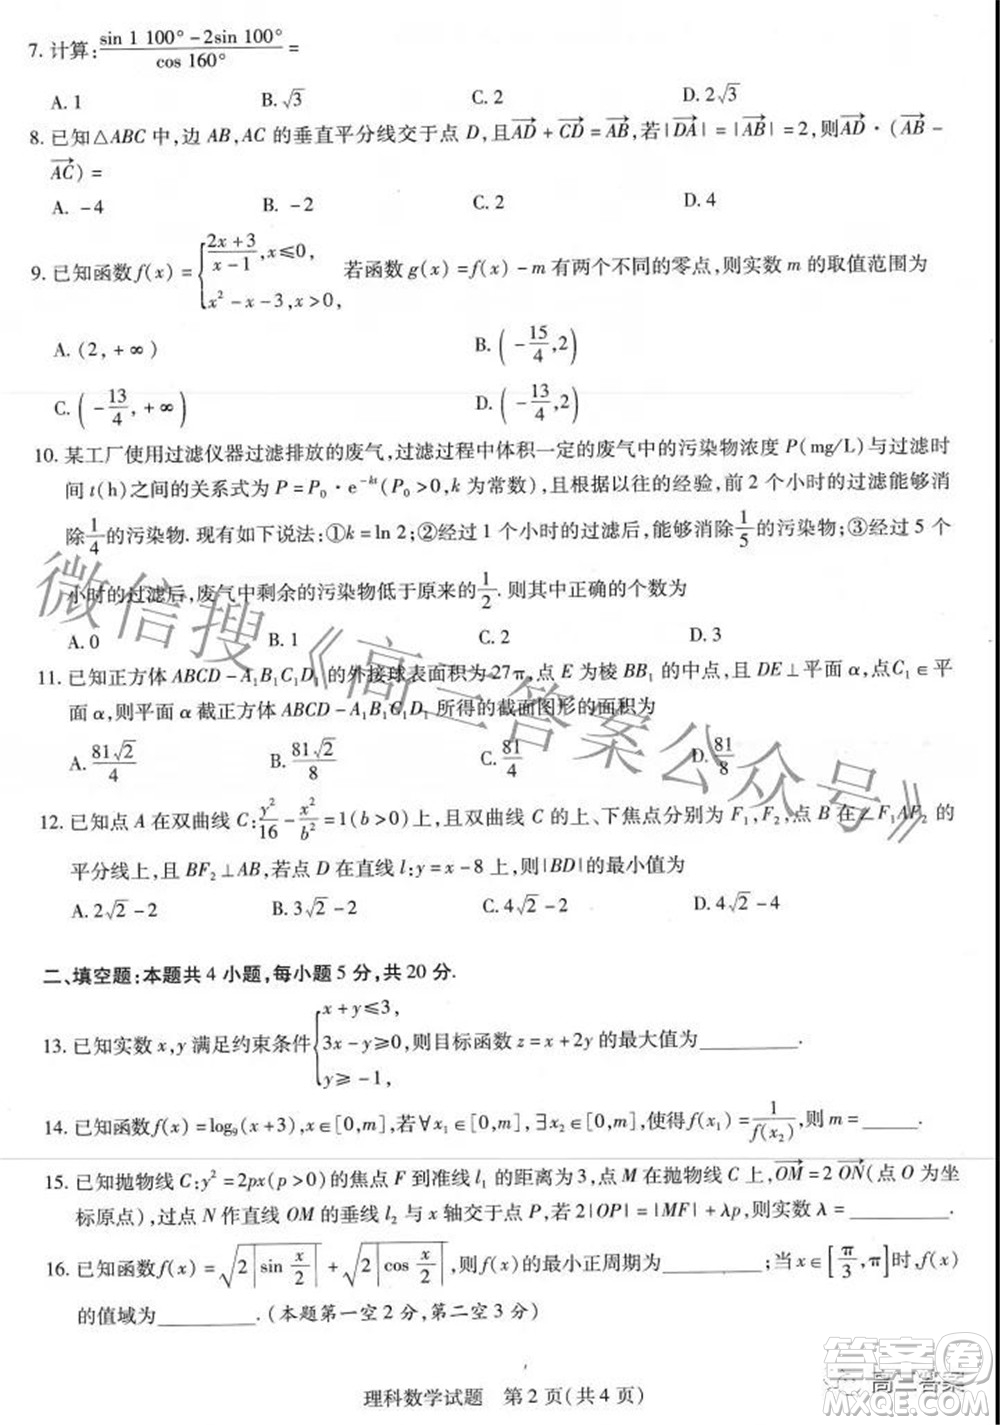 7. 计算:(sin 1 100° - 2sin 100°)/(cos 160°) =
A. 1 B. √3 C. 2 D. 2√3
8. 已知△ABC 中,边 AB,AC 的垂直平分线交于点 D,且→AD + →CD = →AB,若|→DA| = |→AB| = 2,则→AD · (→AB -
→AC) =
A. -4 B. -2 C. 2 D. 4
9. 已知函数 f(x) = { (2x+3)/(x-1), x≤0, x² - x - 3, x>0, 若函数 g(x) = f(x) - m 有两个不同的零点,则实数 m 的取值范围为
A. (2, +∞) B. (-15/4, 2)
C. (-13/4, +∞) D. (-13/4, 2)
10. 某工厂使用过滤仪器过滤排放的废气,过滤过程中体积一定的废气中的污染物浓度 P(mg/L)与过滤时
间 t(h)之间的关系式为 P = P₀ · e^(-kt)(P₀>0,k 为常数),且根据以往的经验,前 2 个小时的过滤能够消
除 1/4 的污染物. 现有如下说法:①k = ln 2;②经过 1 个小时的过滤后,能够消除 1/5 的污染物;③经过 5 个
小时的过滤后,废气中剩余的污染物低于原来的 1/2. 则其中正确的个数为
A. 0 B. 1 C. 2 D. 3
11. 已知正方体 ABCD - A₁B₁C₁D₁ 的外接球表面积为 27π,点 E 为棱 BB₁ 的中点,且 DE⊥平面 α,点C₁∈平
面 α,则平面 α 截正方体 ABCD - A₁B₁C₁D₁ 所得的截面图形的面积为
A. 81√2/4 B. 81√2/8 C. 81/4 D. 81/8
12. 已知点 A 在双曲线 C: y²/16 - x²/b² = 1(b>0)上,且双曲线 C 的上、下焦点分别为 F₁,F₂,点 B 在∠F₁AF₂ 的
平分线上,且 BF₂⊥AB,若点 D 在直线 l:y = x - 8 上,则|BD|的最小值为
A. 2√2 - 2 B. 3√2 - 2 C. 4√2 - 2 D. 4√2 - 4
二、填空题:本题共 4 小题,每小题 5 分,共 20 分.
13. 已知实数 x,y 满足约束条件{ x+y≤3, 3x-y≥0, y≥-1, 则目标函数 z = x + 2y 的最大值为________.
14. 已知函数 f(x) = log₉(x+3),x∈[0,m],若∀x₁∈[0,m],∃x₂∈[0,m],使得 f(x₁) = 1/f(x₂),则 m = ______.
15. 已知抛物线 C:y² = 2px(p>0)的焦点 F 到准线 l₁ 的距离为 4,点 M 在抛物线 C 上,→OM = 2 →ON(点 O 为坐
标原点),过点 N 作直线 OM 的垂线 l₂ 与 x 轴交于点 P,若 2|OP| = |MF| + λp,则实数 λ = ________.
16. 已知函数 f(x) = √(2|sin x/2|) + √(2|cos x/2|),则 f(x)的最小正周期为________;当 x∈[π/3, π]时,f(x)
的值域为________.(本题第一空 2 分,第二空 3 分)
理科数学试题 第 2 页(共 4 页)
微信搜《高三答案公众号》
答案圈
高三答案